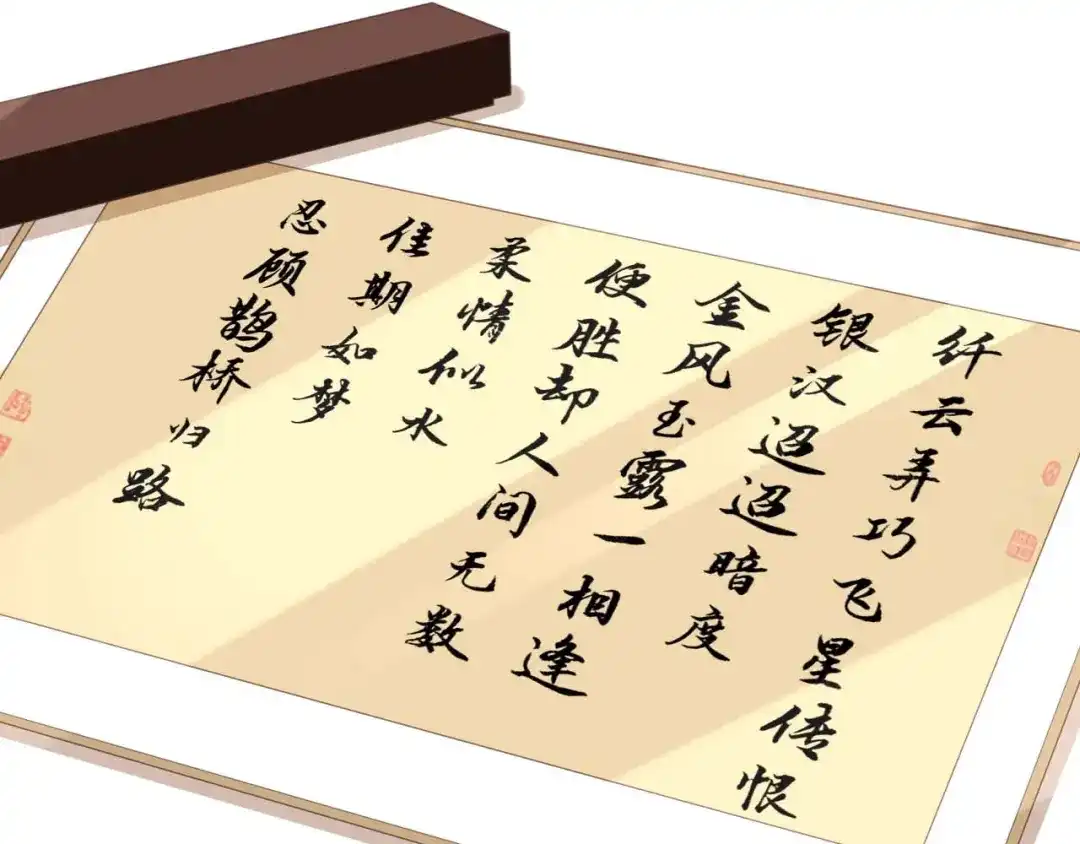 纤云弄巧飞星传恨
银汉迢迢暗度
金风玉露一相逢
便胜却人间无数
柔情似水
佳期如梦
忍顾鹊桥归路